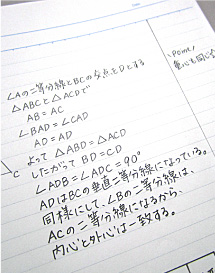 ∠Aの二等分線とBCの交点をDとする
△ABCと△ACDで
AB = AC
∠BAD = ∠CAD
AD = AD
よって △ABD ≡ △ACD
C
したがって BD = CD
∠ADB = ∠ADC = 90°
ADはBCの垂直二等分線になっている。
同様にして、∠Bの二等分線は、
ACの二等分線になるから、
内心と外心は一致する。